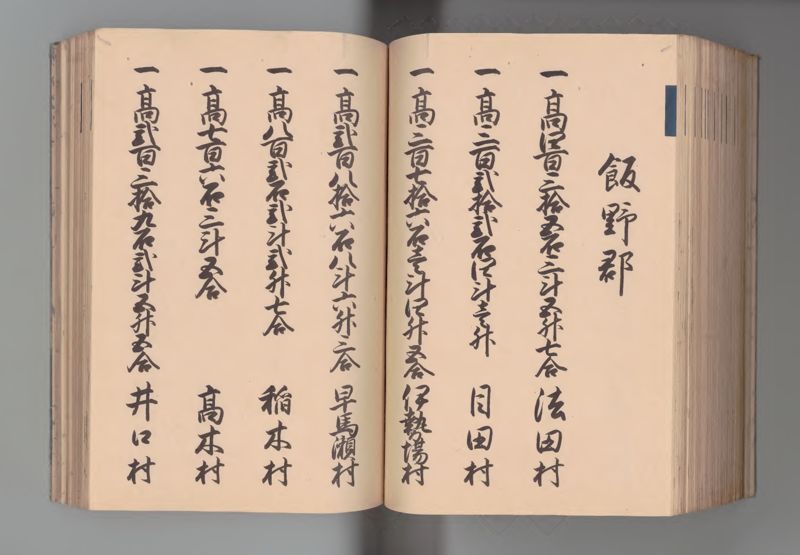 飯野郡
一高四百三拾五石三斗五升七合 法田村
一高三百弐拾弐石四斗壱升 目田村
一高三百七拾六石壱斗四升五合 伊勢場村
一高弐百八拾六石八斗六升三合 早馬瀬村
一高八百弐石弐斗弐升七合 稲木村
一高七百六石三斗五合 高木村
一高弐百三拾九石弐斗五升五合 井口村